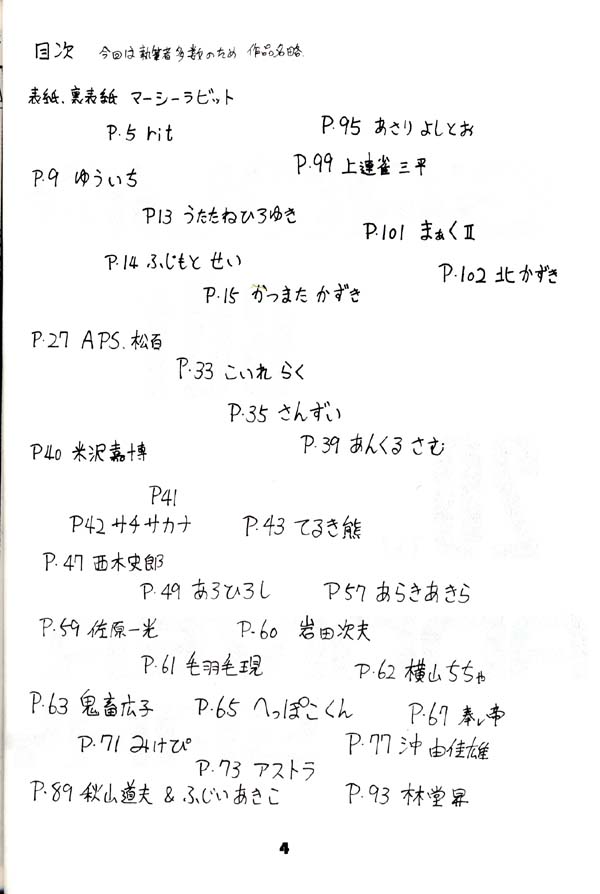 目次 今回は執筆者多数のため 作品名略.
表紙.裏表紙 マーシーラビット
P.5 rit
P.95 あさりよしとお
P.99 上連雀三平
P.9 ゆういち
P13 うたたねひろゆき
P.101 まぁくII
P.14 ふじもと せい
P.102 北かずき
P.15 かつまた かずき
P.27 APS.松百
P.33 こいれ らく
P.35 さんずい
P.39 あんくる さむ
P40 米沢嘉博
P41
P42 サチサカナ P.43 てるき熊
P.47 西木史郎
P.49 あろひろし P57 あらきあきら
P.59 佐原一光 P.60 岩田次夫
P.61 毛羽毛現 P.62 横山ちちゃ
P.63 鬼畜広子 P.65 へっぽこくん P.67
P.71 みけぴ P.77 沖由佳雄
P.73 アストラ
P.89 秋山道夫 & ふじいあきこ P.93 林堂昇
4